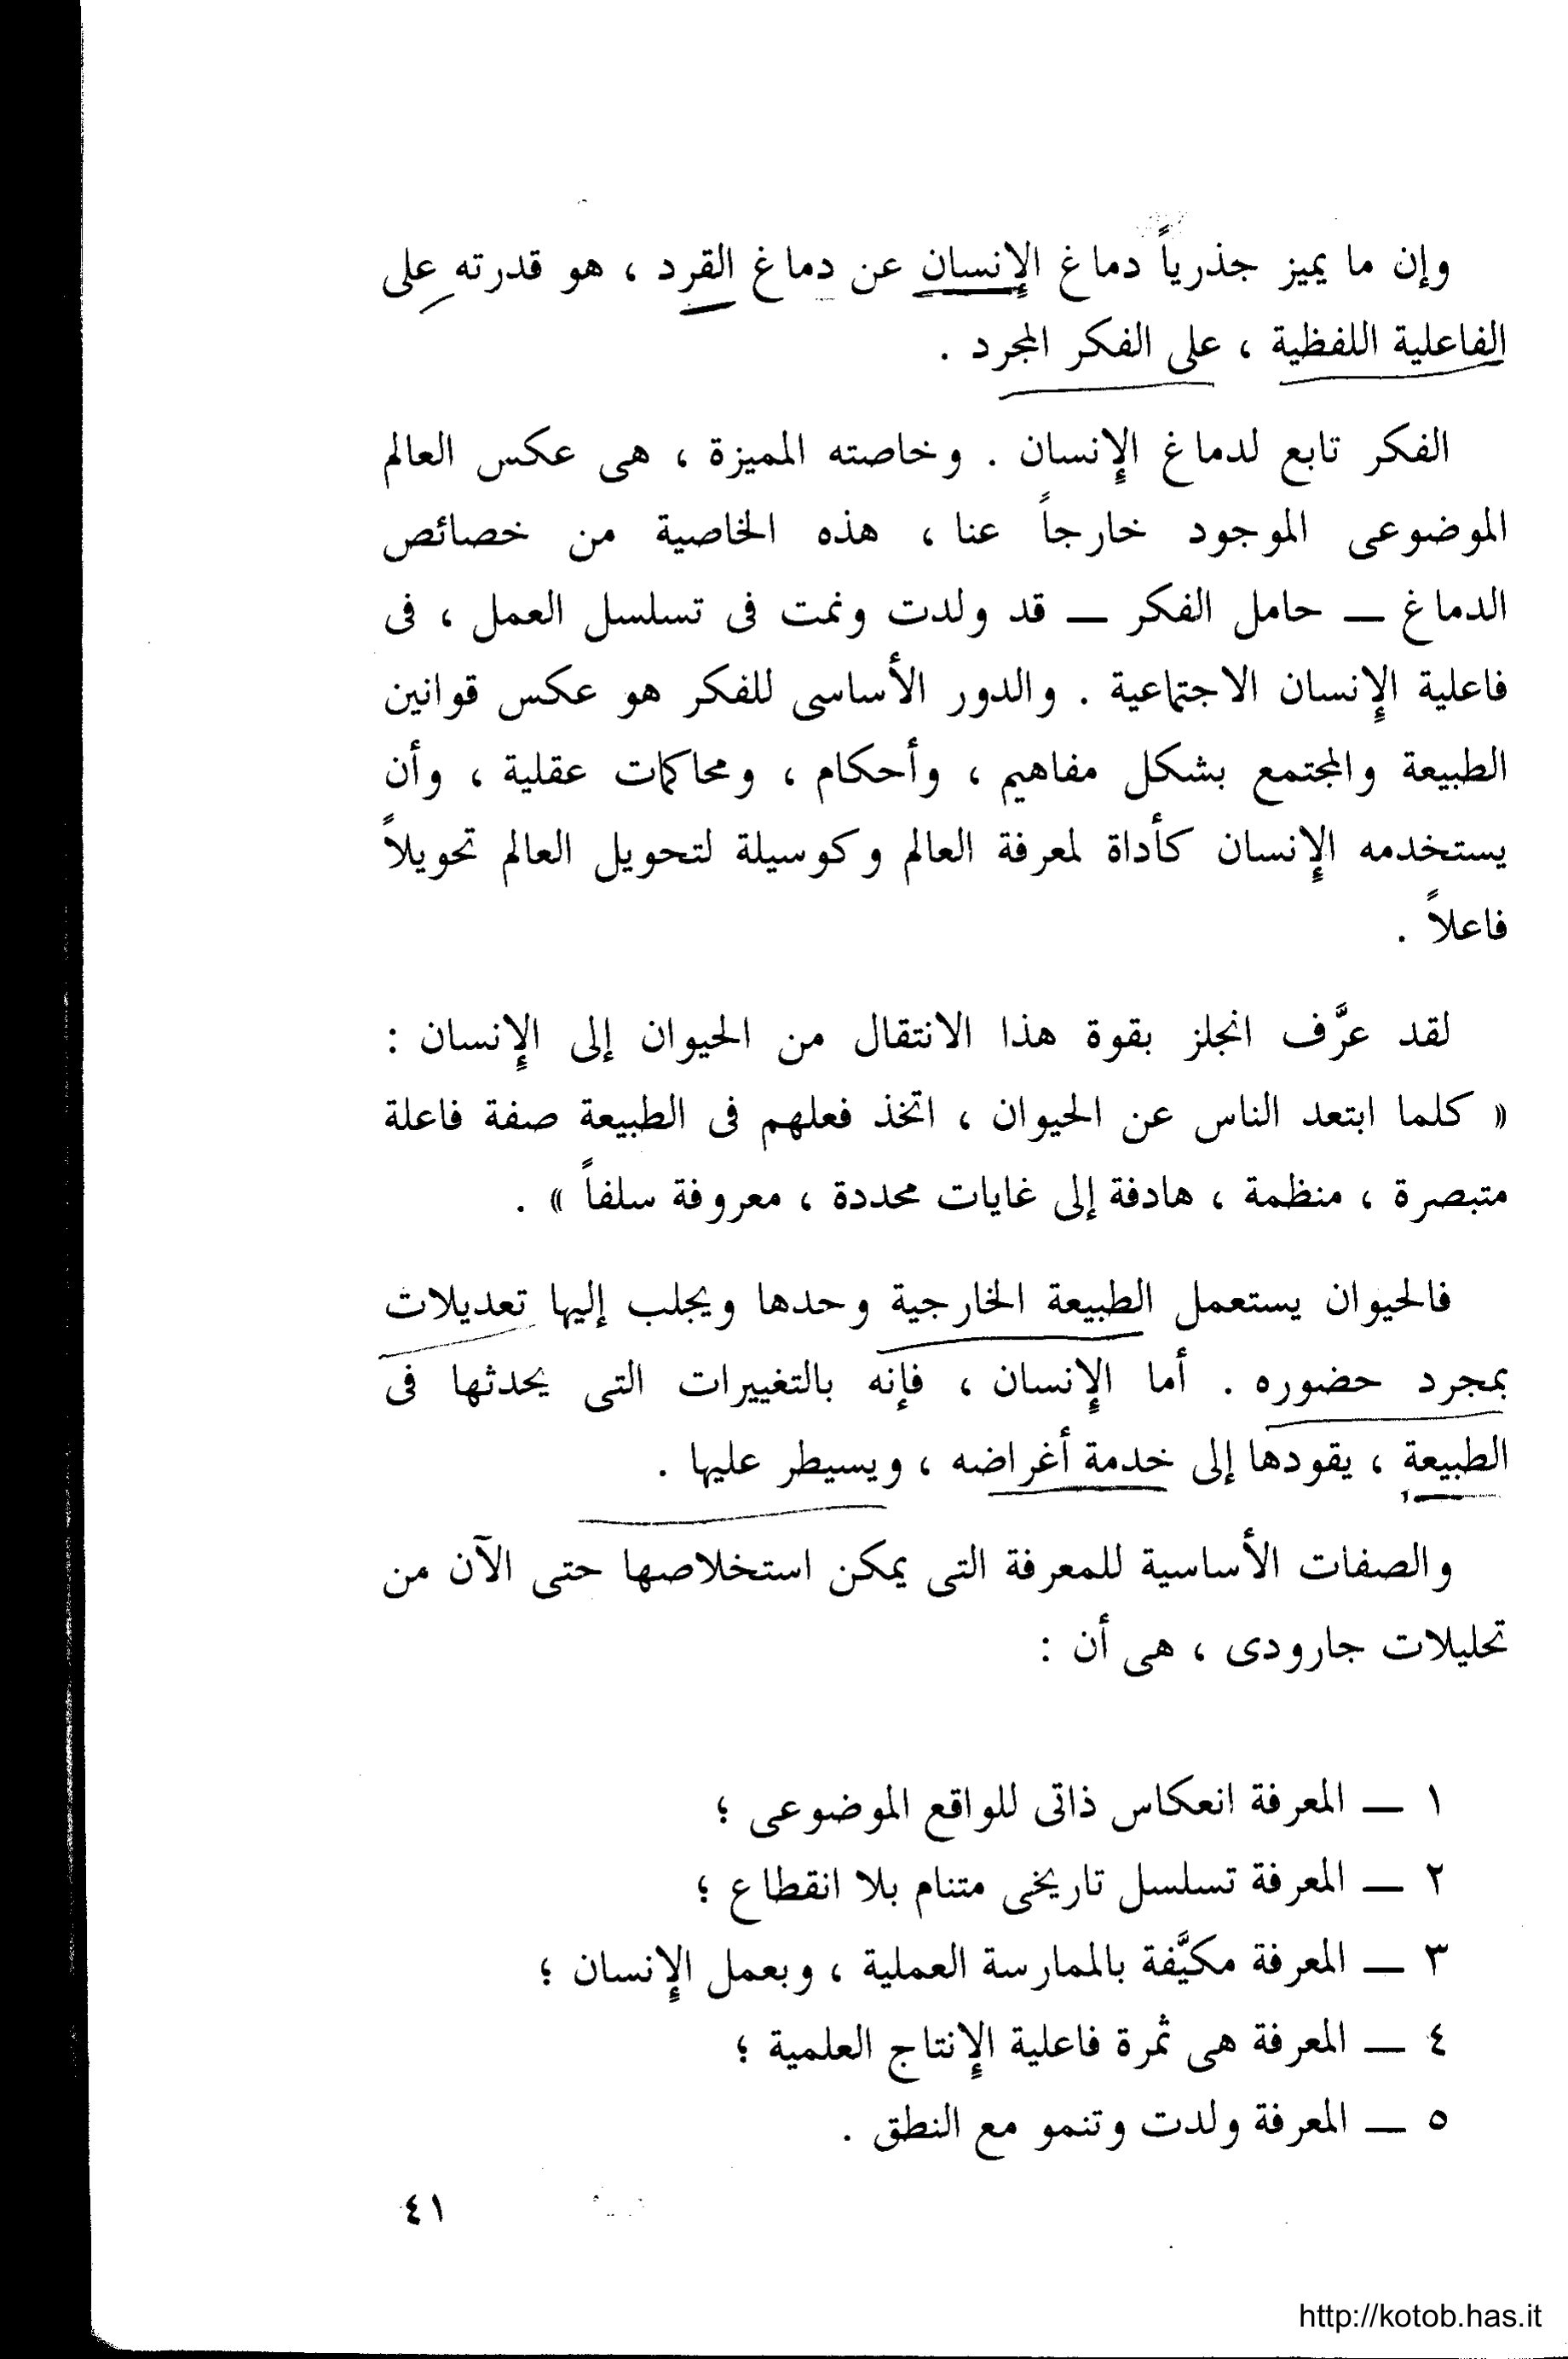 وإن ما يميز جذرياً دماغ الإنسان عن دماغ القرد ، هو قدرته على
الفاعلية اللفظية ، على الفكر المجرد .
الفكر تابع لدماغ الإنسان . وخاصته المميزة ، هى عكس العالم
الموضوعى الموجود خارجاً عنا ، هذه الخاصية من خصائص
الدماغ — حامل الفكر — قد ولدت ونمت فى تسلسل العمل ، فى
فاعلية الإنسان الاجتماعية . والدور الأساسى للفكر هو عكس قوانين
الطبيعة والمجتمع بشكل مفاهيم ، وأحكام ، ومحاكمات عقلية ، وأن
يستخدمه الإنسان كأداة لمعرفة العالم وكوسيلة لتحويل العالم تحويلاً
فاعلاً .
لقد عرَّف انجلز بقوة هذا الانتقال من الحيوان إلى الإنسان :
« كلما ابتعد الناس عن الحيوان ، اتخذ فعلهم فى الطبيعة صفة فاعلة
متبصرة ، منظمة ، هادفة إلى غايات محددة ، معروفة سلفاً » .
فالحيوان يستعمل الطبيعة الخارجية وحدها ويجلب إليها تعديلات
بمجرد حضوره . أما الإنسان ، فإنه بالتغييرات التى يحدثها فى
الطبيعة ، يقودها إلى خدمة أغراضه ، ويسيطر عليها .
والصفات الأساسية للمعرفة التى يمكن استخلاصها حتى الآن من
تحليلات جارودى ، هى أن :
١ — المعرفة انعكاس ذاتى للواقع الموضوعى ؛
٢ — المعرفة تسلسل تاريخى متنام بلا انقطاع ؛
٣ — المعرفة مكيَّفة بالممارسة العملية ، وبعمل الإنسان ؛
٤ — المعرفة هى ثمرة فاعلية الإنتاج العلمية ؛
٥ — المعرفة ولدت وتنمو مع النطق .
٤١
http://kotob.has.it